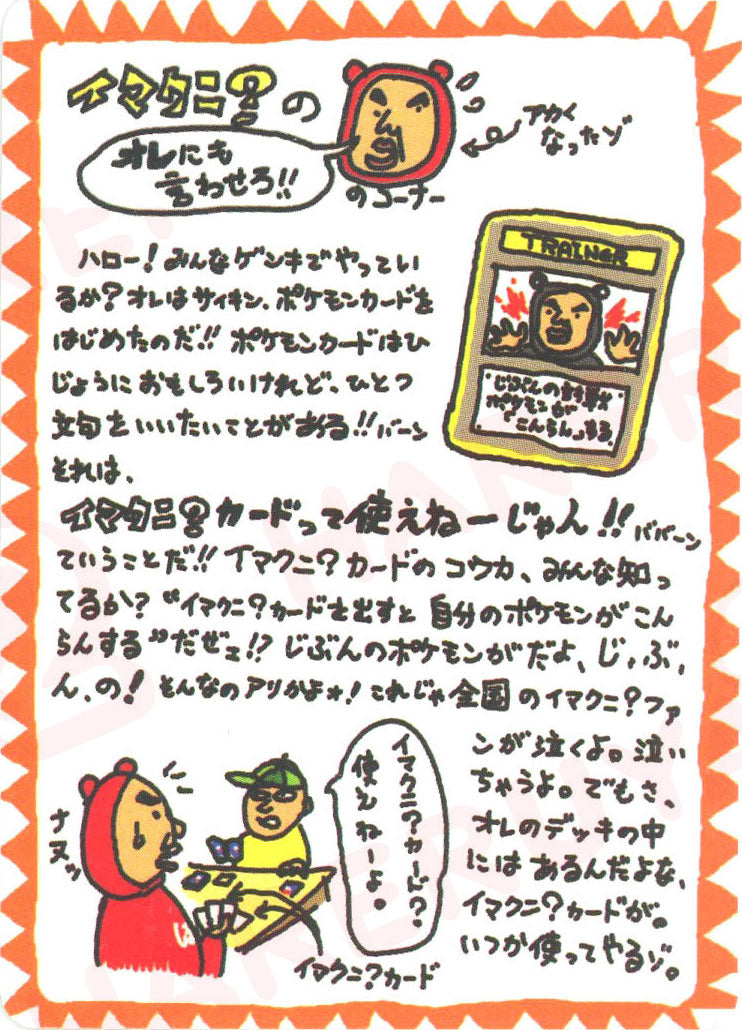 イマクニ?の
オレにも
言わせろ!!
のコーナー
アカく
なったゾ
TRAINER
じぶんの
ポケモンが
「こんらん」する。
ハロー!みんなゲンキでやってい
るか?オレはサイキン、ポケモンカードを
はじめたのだ!!ポケモンカードはひ
じょうにおもしろいけれど、ひとつ
文句をいいたいことがある!!バーン
それは、
イマクニ?カードって使えねーじゃん!!ババーン
ていうことだ!!イマクニ?カードのコウカ、みんな知っ
てるか?“イマクニ?カードを出すと自分のポケモンがこん
らんする”だぜェ!?じぶんのポケモンがだよ、じ、ぶ、
ん、の!そんなのアリかよォ!これじゃ全国のイマクニ?ファ
ンが泣くよ。泣い
ちゃうよ。でもさ、
オレのデッキの中
にはあるんだよな、
イマクニ?カードが。
いつか使ってやるゾ。
ナヌッ
イマクニ?カード?
使えねーよ。
イマクニ?カード